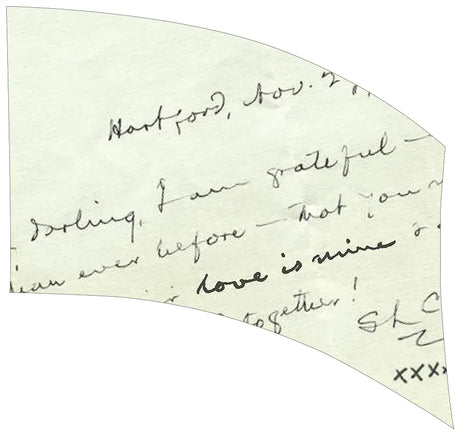 Hartford, Nov. 2
darling, I am grateful —
than ever before — that you
love is mine
together!
SLC
xxxx